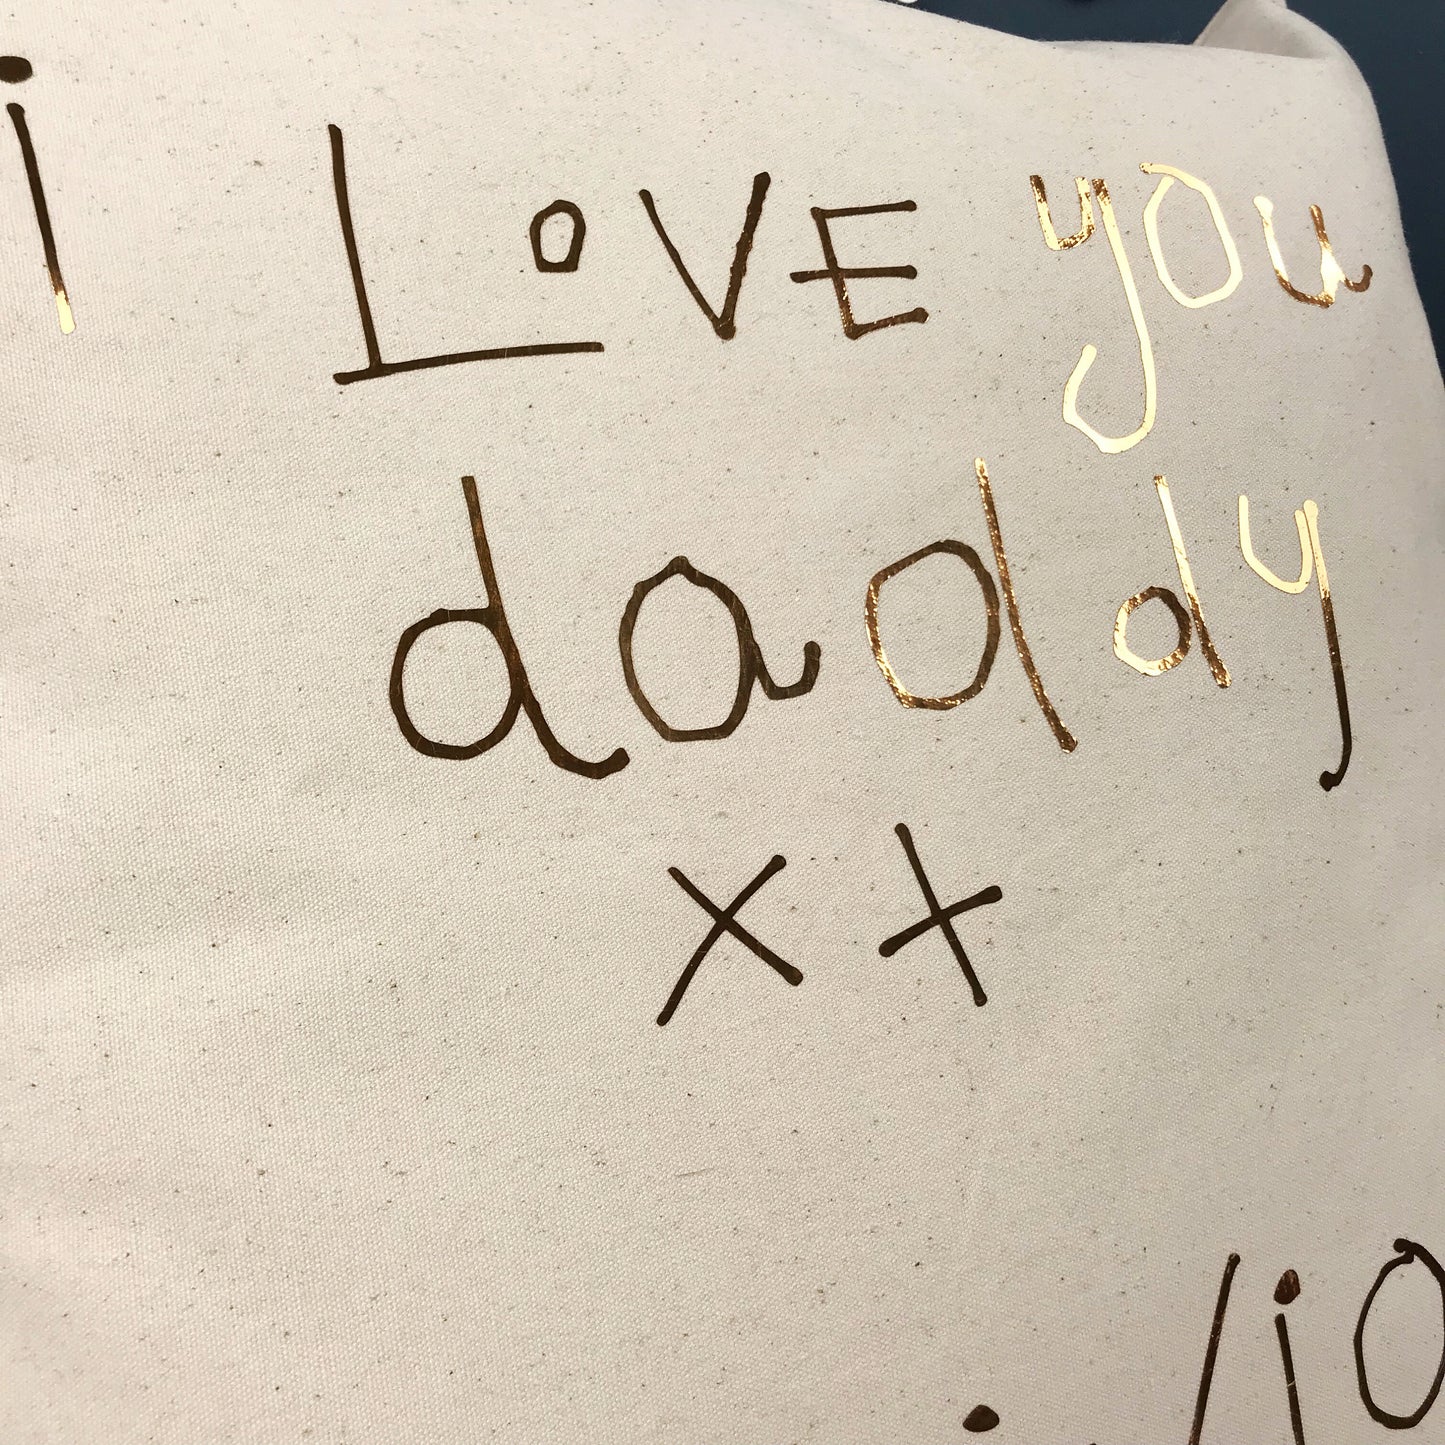 i LovE you
daddy
xx